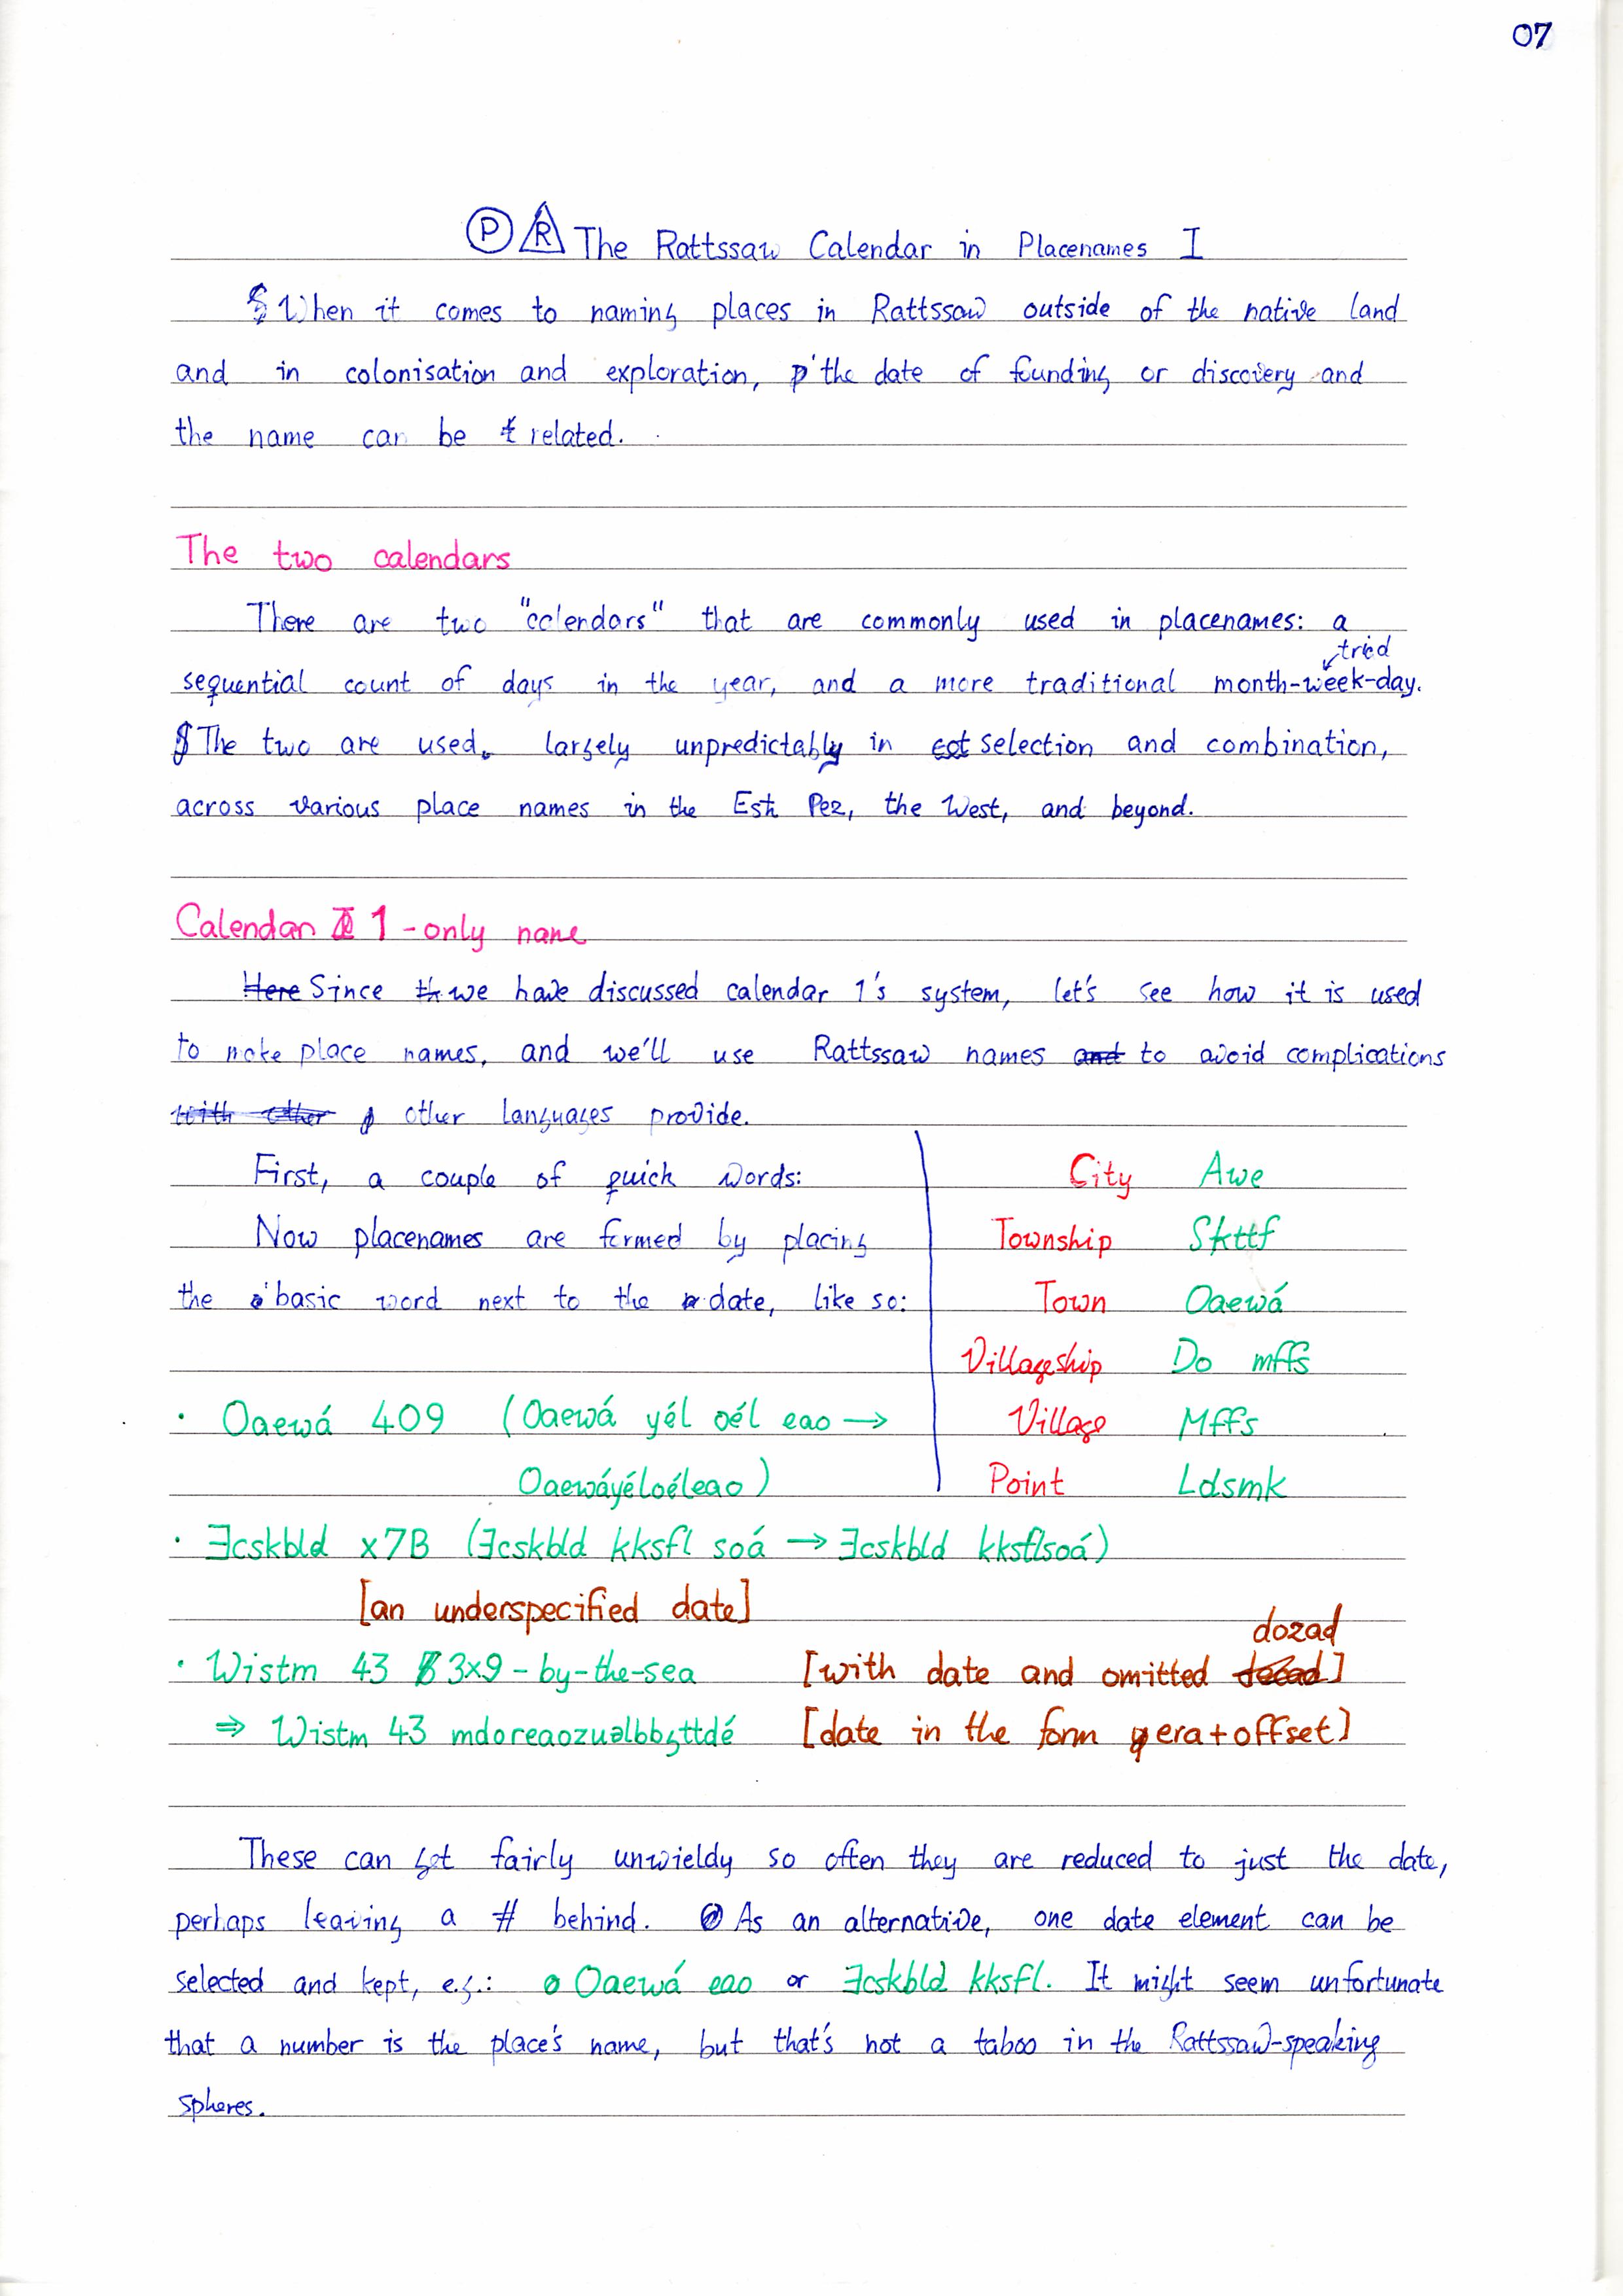 07
Ⓟ R The Rattssaw Calendar in Placenames I
When it comes to naming places in Rattssaw outside of the native land
and in colonisation and exploration, the date of founding or discovery and
the name can be related.
The two calendars
There are two "calendars" that are commonly used in placenames: a
triad
sequential count of days in the year, and a more traditional month-week-day.
The two are used largely unpredictably in selection and combination,
across various place names in the Esh Pez, the West, and beyond.
Calendar 1-only name
Here Since we have discussed calendar 1's system, let's see how it is used
to make place names, and we'll use Rattssaw names and to avoid complications
with other other languages provide.
First, a couple of quick words:
Now placenames are formed by placing
the basic word next to the date, like so:
City Awe
Township Skttf
Town Oaewá
Villageship Do mffs
Village Mffs
Point Ldsmk
· Oaewá 409 (Oaewá yél oél eao →
Oaewáyéloéleao)
· Ǝcskbld x7B (Ǝcskbld kksfl soá → Ǝcskbld kksflsoá)
[an underspecified date]
dozad
· Wistm 43 3x9-by-the-sea [with date and omitted decad]
⇒ Wistm 43 mdoreaozuəlbbgttdé [date in the form era+offset]
These can get fairly unwieldy so often they are reduced to just the date,
perhaps leaving a # behind. As an alternative, one date element can be
selected and kept, e.g.: Oaewá eao or Ǝcskbld kksfl. It might seem unfortunate
that a number is the place's name, but that's not a taboo in the Rattssaw-speaking
spheres.